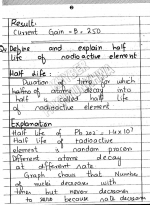 Result:
Current Gain = B = 250
Q. Define and explain half
life of radioactive element
Half life:
Duration of time for which
half of atoms decay into
half is called half life
of radioactive element
Explanation
Half life of Pb 202 =
Half life of radioactive
element is random process
Different atoms decay
at different rate
Graph shows that Number
of nuclei decrease with
time but never decrease
to zero because rate decrease